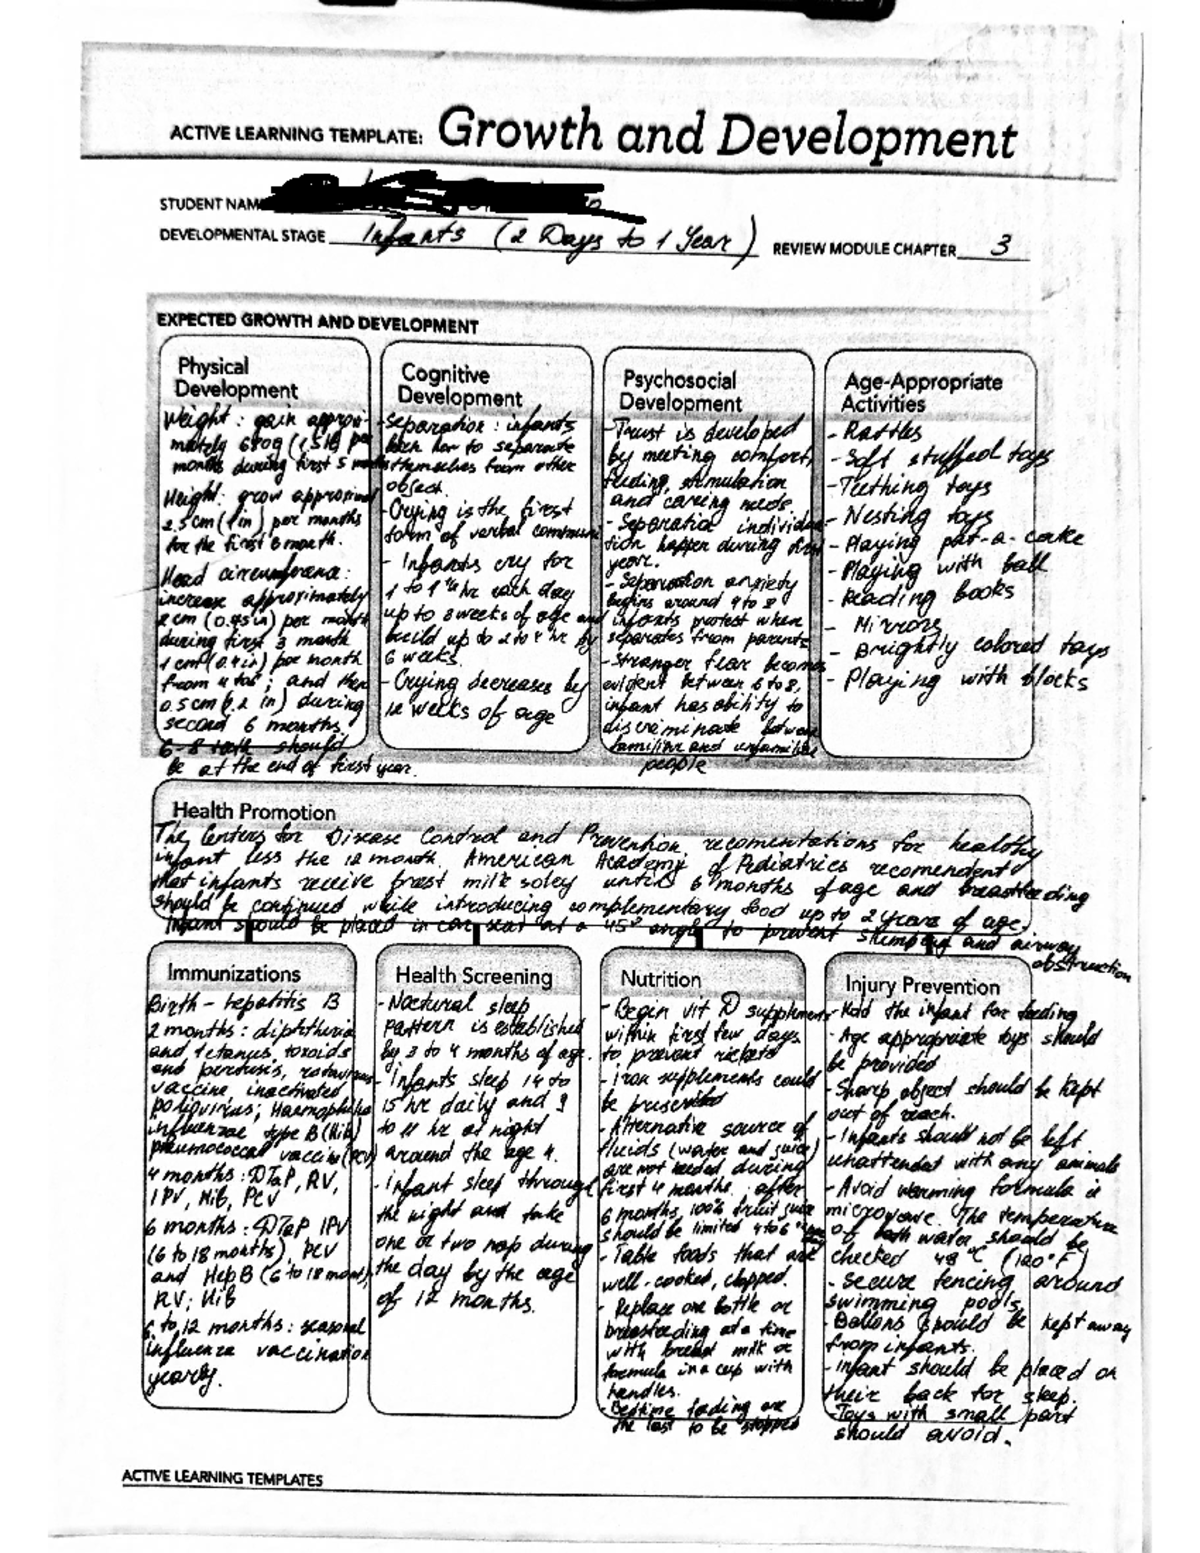 ACTIVE LEARNING TEMPLATE: Growth and Development
STUDENT NAM
DEVELOPMENTAL STAGE Infants (2 Days to 1 Year) REVIEW MODULE CHAPTER 3
EXPECTED GROWTH AND DEVELOPMENT
Physical
Development
Weight: gain approxi-
mately 680g (1.5lb) per
months during first 5 months
Height: grow approximat
2.5cm (1in) per months
for the first 6 month.
Head circumference:
increase approximately
2 cm (0.75in) per month
during first 3 month
1 cm (0.4in) per month
from 4 to 6; and then
0.5cm (.2 in) during
second 6 months
6-8 teeth should
be at the end of first year.
Cognitive
Development
-Separation: infants
learn how to separate
themselves from other
object.
- Crying is the first
form of verbal commun
- Infants cry for
1 to 1 ½ hr each day
up to 3 weeks of age and
build up to 2 to 4 hr by
6 weeks.
- Crying decreases by
12 weeks of age
Psychosocial
Development
-Trust is developed
by meeting comfort,
feeding, stimulation
and caring needs.
- Separation individua
tion happen during first
year.
- Separation anxiety
begins around 4 to 8
infants protest when
separates from parents
-Stranger fear becomes
evident between 6 to 8,
infant has ability to
discriminate between
familiar and unfamiliar
people
Age-Appropriate
Activities
- Rattles
- Soft stuffed toys
- Teething toys
- Nesting toys
- Playing pat-a-cake
- Playing with ball
- Reading books
- Mirrors
- Brightly colored toys
- Playing with blocks
Health Promotion
The Centers for Disease Control and Prevention recomentations for healthy
infant less the 12 month. American Academy of Pediatrics recomendent
that infants receive brest milk soley until 6 months of age and breastfeeding
should be continued while introducing complementary food up to 2 years of age.
Infant should be placed in car seat at a 45° angle to prevent slumping and airway
obstruction
Immunizations
Birth - hepatitis B
2 months: diphtheria
and tetanus toxoids
and pertusis, rotavirus
vaccine, inactivated
poliovirus; Haemophilus
influenzae type B (Hib)
pneumococcal vaccine (PCV)
4 months: DTaP, RV,
IPV, Hib, PCV
6 months: DTaP IPV
(6 to 18 months), PCV
and HepB (6 to 18 mont)
RV; Hib
6 to 12 months: seasonal
influenza vaccination
yearly.
Health Screening
- Noctural sleep
pattern is established
by 3 to 4 months of age.
- Infants sleep 14 to
15 hr daily and 9
to 11 hr at night
around the age 4.
- Infant sleep through
the night and take
one or two nap during
the day by the age
of 12 months.
Nutrition
- Begin vit D supplements
within first few days
to prevent rickets
- Iron supplements could
be prescribed
- Alternative source of
fluids (water and juice)
are not needed during
first 4 months. after
6 months, 100% fruit juice
should be limited 4 to 6
- Table foods that are
well-cooked, chopped.
- Replace one bottle or
breastfeeding at a time
with breast milk or
formula in a cup with
handles.
- Bedtime feeding are
the last to be stopped
Injury Prevention
- Hold the infant for feeding
- Age appropriate toys should
be provided
- Sharp object should be kept
out of reach.
- Infants should not be left
unattendet with any animals
- Avoid warming formula in
microwave. The temperature
of bath water should be
checked 49 °C (120°F)
- Secure fencing around
swimming pools
- Ballons should be kept away
from infants.
- Infant should be placed on
their back for sleep.
-Toys with small part
should avoid.
ACTIVE LEARNING TEMPLATES